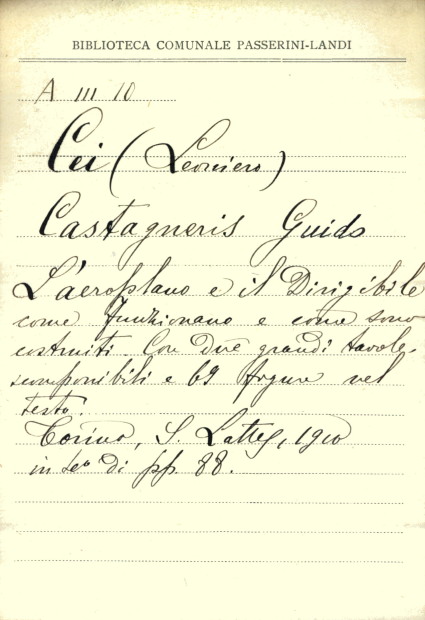 BIBLIOTECA COMUNALE PASSERINI-LANDI
A III 10
Cei (Leoniero)
Castagneris Guido
L'aeroplano e il Dirigibile
come funzionano e come sono
costruiti. Con due grandi tavole
scomponibili e 69 figure nel
testo.
Torino, S. Lattes, 1910
in 4º di pp. 88.